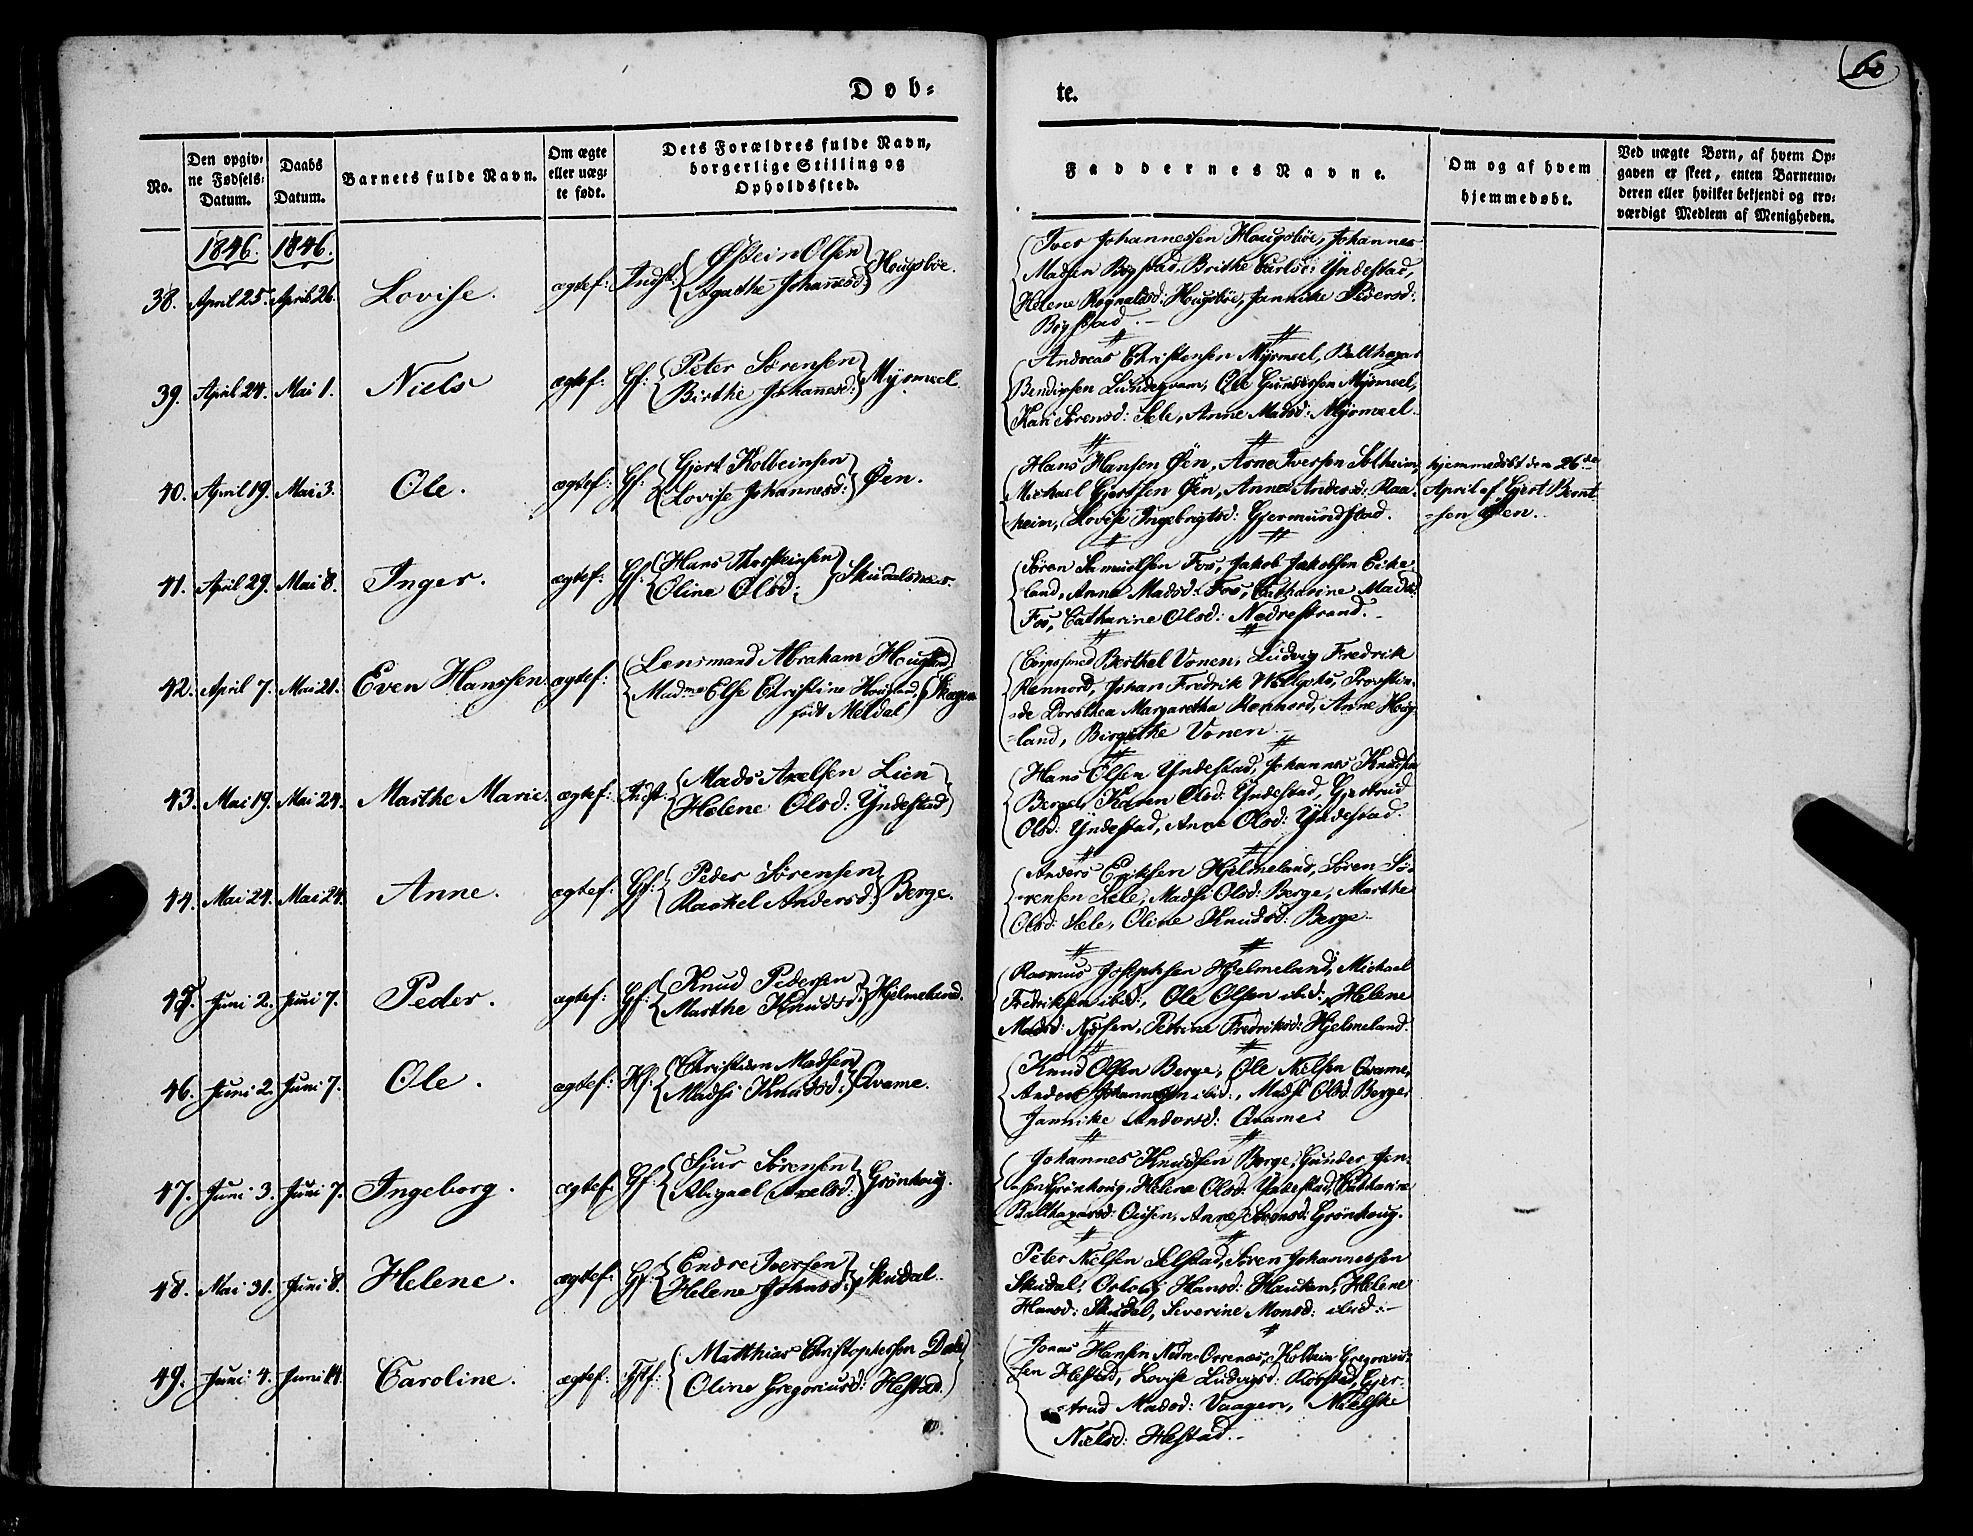 60
Døb-
te.
No.
Den opgiv-
ne Fødsels-
Datum.
Daabs
Datum.
Barnets fulde Navn.
Om ægte
eller uæg-
te født.
Dets Forældres fulde Navn,
borgerlige Stilling og
Opholdssted.
Faddernes Navne.
Om og af hvem
hjemmedøbt.
Ved uægte Børn, af hvem Op-
gaven er skeet, enten Barnemo-
deren eller hvilket bekjendt og tro-
værdigt Medlem af Menigheden.
1846. 1846.
38. April 25. April 26. Lovise. ægtef: Indst: Østein Olsen
Agathe Johannesd: Hougsbøe.
Iver Johannessen Hougsbøe, Johannes
Madsen Bogstad, Brithe Carlsd: Yndestad,
Helene Rognaldsd: Hougsbøe, Jannicke Pedersd:
Bogstad.
39. April 24. Mai 1. Niels ægtef: Gf: Peter Sørensen
Birthe Johannesd: Myrmeel.
Andreas Christensen Myrmeel, Balthazar
Bendixsen Lundeqvam, Ole Gundersen Myrmeel,
Kari Sørensd: Sele, Anne Madsd: Myrmeel.
40. April 19. Mai 3. Ole. ægtef: Gf: Gjert Kolbeinsen
Lovise Johannesd: Øen.
Hans Hansen Øen, Arne Iversen Solheim,
Michael Gjertsen Øen, Anne Andersd: Raa-
heim, Lovise Ingebrigtsd: Gjermundstad.
hjemmedøbt den 26de
April af Gjert Bernt-
-sen Øen.
41. April 29. Mai 8. Inger. ægtef: Gf: Hans Thorsteinsen
Oline Olsd: Skudalsnæs.
Søren Samuelsen Fos, Jakob Jakobsen Eike-
land, Anna Madsd: Fos, Catharine Madsd:
Fos, Catharine Olsd: Nedrestrand.
42. April 7. Mai 21. Even Hanssen. ægtef: Lensmand Abraham Hougland
Madme Else Christine Hougland, Skagen
født Meldal
Berthel Vonen, Ludvig Fredrik
Rennord, Johan Fredrik
-de Dorothea Margaretha Rennord, Anne Houg-
-land, Birgithe Vonen
43. Mai 19. Mai 24. Marthe Marie. ægtef: Indst: Mads Axelsen Lien
Helene Olsd: Yndestad
Hans Olsen Yndestad, Johannes Knudsen
Berge, Karen Olsd: Yndestad, Gjertrud
Olsd: Yndestad, Anne Olsd: Yndestad.
44. Mai 24. Mai 24. Anne. ægtef: Gf: Peder Sørensen
Rachel Andersd: Berge.
Anders Eriksen Hjelmeland, Søren Sø-
rensen Sele, Madsi Olsd: Berge, Marthe
Olsd: Sele, Oline Knudsd: Berge
45. Juni 2. Juni 7. Peder. ægtef: Gf: Knud Pedersen
Marthe Knudsd: Hjelmeland.
Rasmus Josephsen Hjelmeland, Michael
Fredriksen ibid:, Ole Olsen ibid: Helene
Madsd: Nøssen, Petrine Fredriksd: Hjelmeland.
46. Juni 2. Juni 7. Ole. ægtef: Christian Madsen
Madsi Knudsd: Qvame.
Knud Olsen Berge, Ole Nielsen Qvame,
Anders Johannessen ibid:, Madsi Olsd: Berge,
Jannike Andersd: Qvame
47. Juni 3. Juni 7. Ingeborg. ægtef: Gf: Sjur Sørensen
Abigael Axelsd: Grønhoug.
Johannes Knudsen Berge, Gunder Jen-
sen Grønhoug, Helene Olsd: Yndestad, Catharine
Balthazarsd: Anne Sørensd: Grønhoug.
48. Mai 31. Juni 8. Helene. ægtef: Gf: Endre Iversen
Helene Johnsd: Skudal.
Peter Nielsen Selstad, Søren Johannessen
Skudal, Hansd: Helene
Hansd: Skudal, Severine Monsd: ibid:
49. Juni 4. Juni 14. Caroline. ægtef: Matthias Christophersen Dale
Oline Gregoriusd: Hestad.
Jonas Hansen Nedre Kolbein Gregorius-
sen Hestad, Lovise Ludvigsd: Rørstad, Gjer-
-trud Madsd: Vaagen,
Nielsd: Hestad.